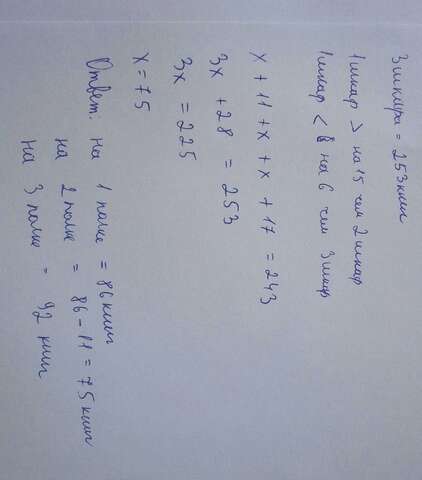 3 шкафа = 253 книг
1 шкаф > на 15 чем 2 шкаф
1 шкаф < в на 6 чем 3 шкаф
x + 11 + x + x + 17 = 243
3x + 28 = 253
3x = 225
x = 75
Ответ: на 1 полке = 86 книг
на 2 полке = 86 - 11 = 75 книг
на 3 полке = 92 книг